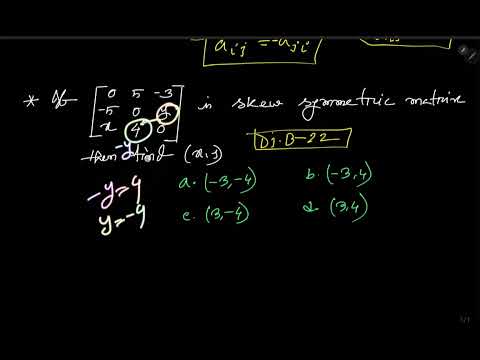 aij = -aji
* If [0 5 -3
-5 0 y
x 4 0] is skew symmetric matrix
Dj.B-22
then find (x,y)
-y
-y=4
y=-4
a. (-3,-4) b. (-3,4)
c. (3,-4) d. (3,4)